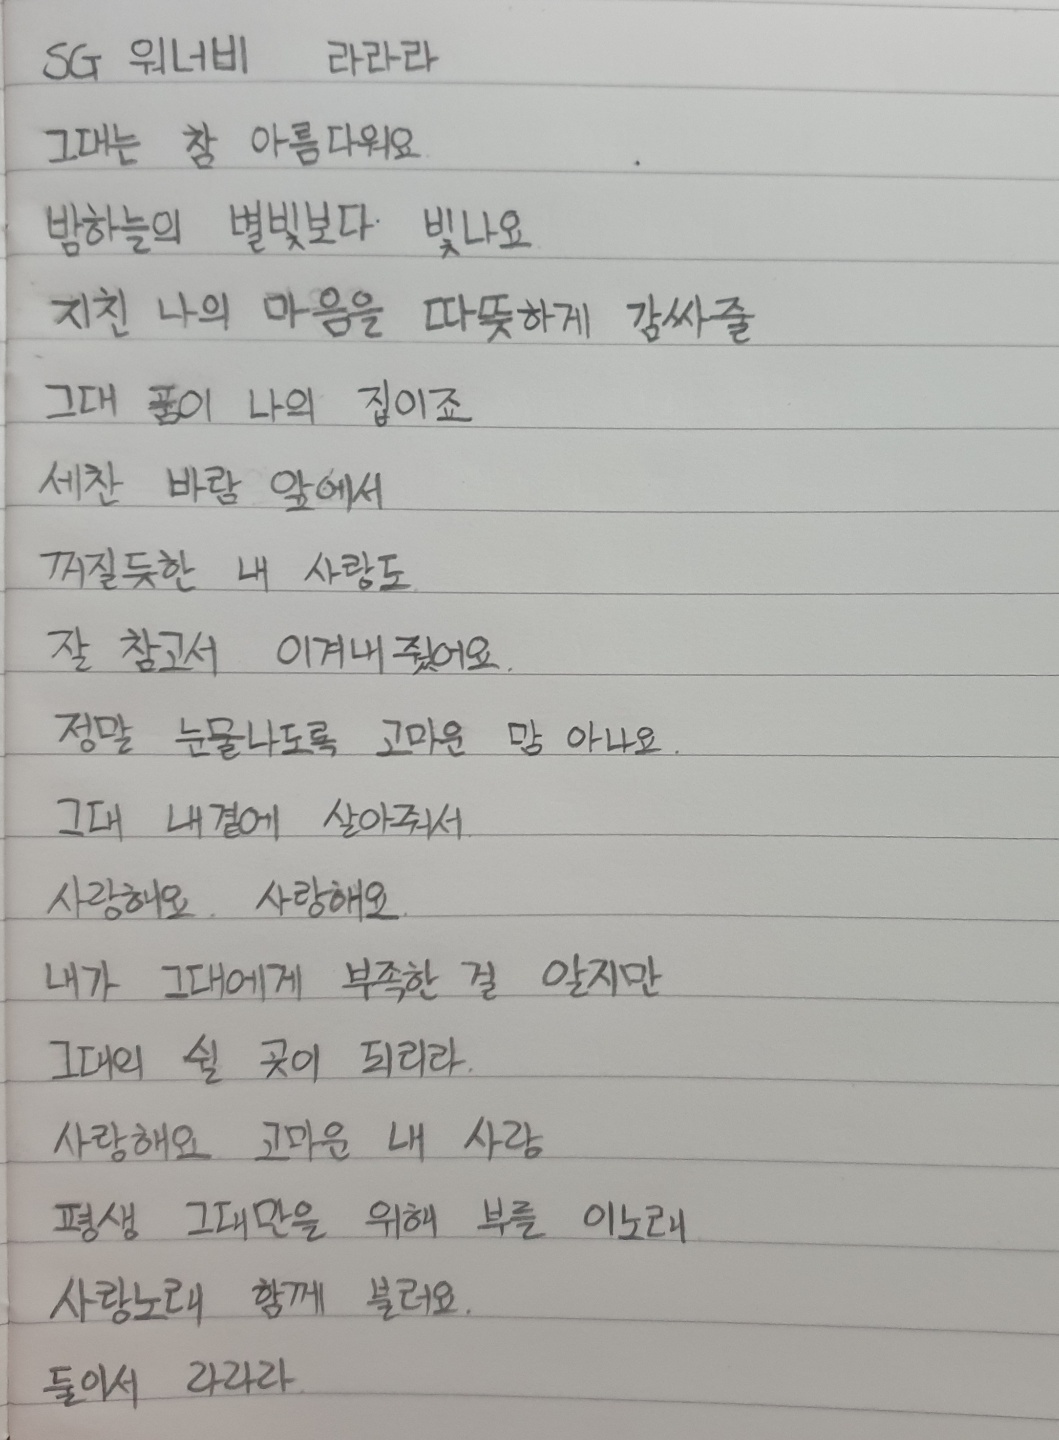 SG 워너비 라라라
그대는 참 아름다워요
밤하늘의 별빛보다 빛나요
지친 나의 마음을 따뜻하게 감싸줄
그대 품이 나의 집이죠
세찬 바람 앞에서
꺼질듯한 내 사랑도
잘 참고서 이겨내줬어요.
정말 눈물나도록 고마운 맘 아나요.
그대 내곁에 살아줘서
사랑해요. 사랑해요.
내가 그대에게 부족한 걸 알지만
그대의 쉴 곳이 되리라.
사랑해요 고마운 내 사랑
평생 그대만을 위해 부를 이노래
사랑노래 함께 불러요.
둘이서 라라라